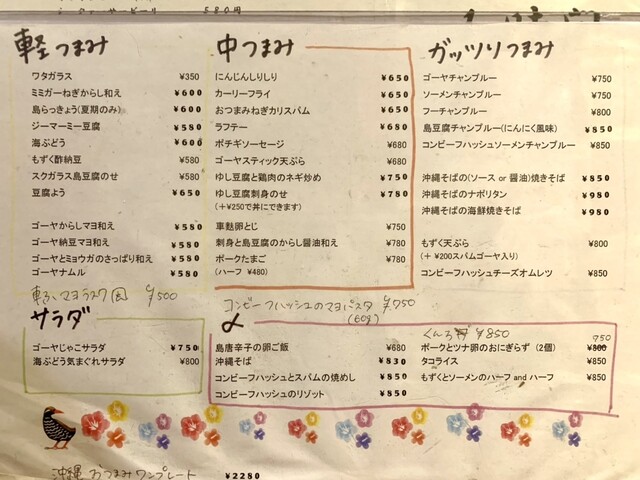 580円
軽つまみ
ワタガラス ¥350
ミミガーねぎからし和え ¥600
島らっきょう(夏期のみ) ¥600
ジーマーミー豆腐 ¥580
海ぶどう ¥600
もずく酢納豆 ¥580
スクガラス島豆腐のせ ¥580
豆腐よう ¥650
ゴーヤからしマヨ和え ¥580
ゴーヤ納豆マヨ和え ¥580
ゴーヤとミョウガのさっぱり和え ¥580
ゴーヤナムル ¥580
¥500
中つまみ
にんじんしりしり ¥650
カーリーフライ ¥650
おつまみねぎカリスパム ¥650
ラフテー ¥680
ポチギソーセージ ¥680
ゴーヤスティック天ぷら ¥680
ゆし豆腐と鶏肉のネギ炒め ¥750
ゆし豆腐刺身のせ ¥780
(+¥250で丼にできます)
車麩卵とじ ¥750
刺身と島豆腐のからし醤油和え ¥780
ポークたまご ¥780
(ハーフ ¥480)
コンビーフハッシュのマヨパスタ ¥750
(60g)
ガッツリつまみ
ゴーヤチャンプルー ¥750
ソーメンチャンプルー ¥750
フーチャンプルー ¥800
島豆腐チャンプルー(にんにく風味) ¥850
コンビーフハッシュソーメンチャンプルー ¥850
沖縄そばの(ソース or 醤油)焼きそば ¥850
沖縄そばのナポリタン ¥980
沖縄そばの海鮮焼きそば ¥980
もずく天ぷら ¥800
(+ ¥200スパムゴーヤ入り)
コンビーフハッシュチーズオムレツ ¥850
サラダ
ゴーヤじゃこサラダ ¥750
海ぶどう気まぐれサラダ ¥800
〆
島唐辛子の卵ご飯 ¥680
沖縄そば ¥830
コンビーフハッシュとスパムの焼めし ¥850
コンビーフハッシュのリゾット ¥850
¥850
750
ポークとツナ卵のおにぎらず (2個) ¥800
タコライス ¥850
もずくとソーメンのハーフ and ハーフ ¥850
沖縄おつまみワンプレート ¥2280